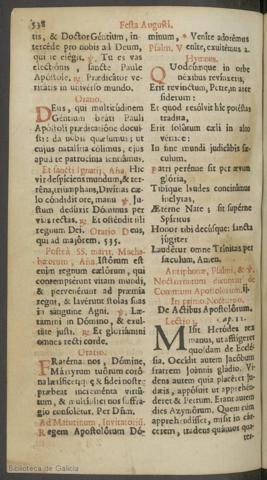 538 Festa Augusti,
tis, & Doctor Géntium, in-
tercéde pro nobis ad Deum,
qui te elégit. ℣. Tu es vas
electiónis, sancte Paule
Apóstole. ℟. Prædicátor ve-
ritátis in univérso mundo.
Oratio.
Deus, qui multitúdinem
Géntium beáti Pauli
Apóstoli prædicatióne docui-
sti: da nobis quæsumus; ut
cujus natalítia cólimus, ejus
apud te patrocínia sentiámus.
Et sancti Ignatij, Aña. Hic
vir despíciens mundum, & ter-
réna, triúmphans, Divítias cæ-
lo cóndidit ore, manu ℣. Ju-
stum dedúxit Dóminus per
vias rectas. ℟. Et osténdit illi
regnum Dei. Oratio Deus,
qui ad majórem. 535.
Postea SS. mart. Macha-
bæorum, Aña. Istórum est
enim regnum cælórum, qui
contempsérunt vitam mundi,
& pervenérunt ad præmia
regni, & lavérunt stolas suas
in sánguine Agni. ℣. Læ-
támini in Dómino, & exul-
táte justi. ℟. Et gloriámini
omnes recti corde.
Oratio.
Fratérna nos, Dómine,
Mártyrum tuórum coró-
na lætíficet: quæ & fídei nostræ
præbeat increménta virtú-
tum, & multíplici nos suffrá-
gio consolétur. Per Dñm.
Ad Matutinum, Invitatoriũ.
Regem Apostolórum Dó-
minum, * Veníte adorémus
Psalm. Veníte, exultémus 2.
Hymnus.
Quodcúmque in orbe
néxibus revínxeris,
Erit revínctum, Petre, in arce
síderum:
Et quod resólvit hic potéstas
trádita,
Erit solútum cæli in alto
vértice:
In fine mundi judicábis sǽ-
culum.
Patri perénne sit per ævum
glória,
Tibíque laudes concinámus
ínclytas,
Ætérne Nate; sit supérne
Spíritus
Honor tibi decúsque: sancta
júgiter
Laudétur omne Trínitas per
sǽculum. Amen.
Antiphonæ, Psalmi, & ℣.
Nocturnorum dicuntur de
Communi Apostolorum. ij.
In primo Nocturno.
De Actibus Apostolórum.
Lectio j. cap. 12.
Misit Heródes rex
manus, ut afflígeret
quosdam de Ecclé-
sia. Occídit autem Jacóbum
fratrem Joánnis gládio. Vi-
dens autem quia placéret Ju-
dǽis, appósuit ut apprehén-
deret & Petrum. Erant autem
dies Azymórum. Quem cum
apprehendísset, misit in cár-
cerem, tradens quátuor qua-
Biblioteca de Galicia